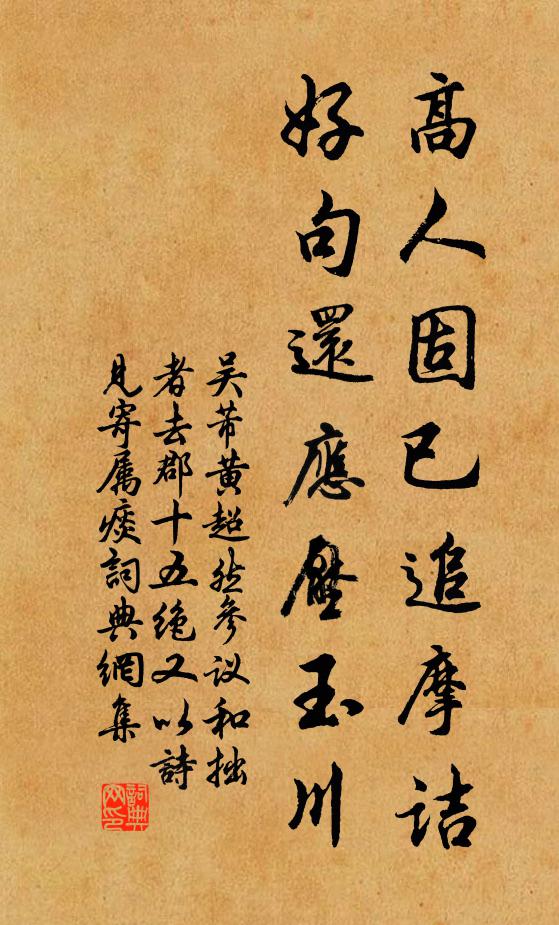 高人固已追摩詰
好句還應壓玉川
吴芾黄超然參议和拙
者去郡十五绝又以詩
見寄属痰詞典網集
詞典网印